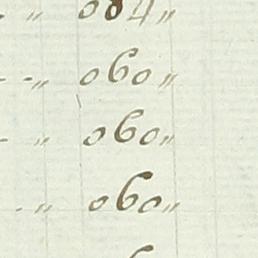 " 084"
- - " 060"
- " 060"
- " 060"